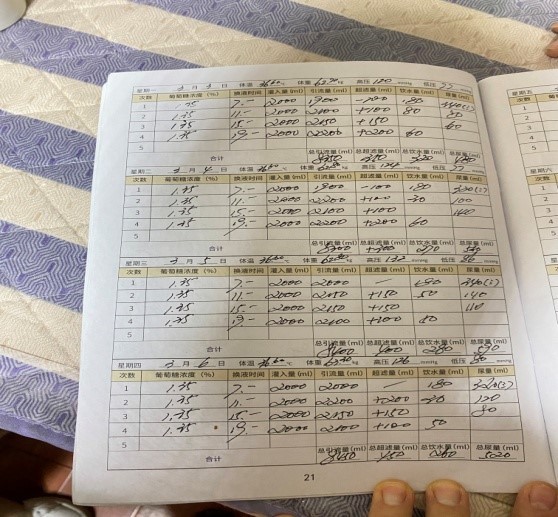 星期一 3月3日 体温 36.6℃ 体重 kg 高压 120 mmHg 低压 mmHg
次数 葡萄糖浓度（%） 换液时间 灌入量(ml) 引流量(ml) 超滤量(ml) 饮水量(ml) 尿量(ml)
1 7:- 2000 1900 -100 180
2 1.35 11:- 2000 2100 +100 80
3 1.35 15:- 2000 2150 +150 60
4 1.35 19:- 2000 2200 +200 60
5
合计 总引流量(ml) 总超滤量(ml) 总饮水量(ml) 总尿量(ml)
8350 350 320
星期二 3月4日 体温 36.6℃ 体重 kg 高压 mmHg 低压 mmHg
次数 葡萄糖浓度（%） 换液时间 灌入量(ml) 引流量(ml) 超滤量(ml) 饮水量(ml) 尿量(ml)
1 1.35 7:- 2000 1900 -100 180
2 1.35 11:- 2000 2200 30 100
3 1.35 15:- 2000 2100 +100 140
4 1.35 19:- 2000 2200 +200 60
5
合计 总引流量(ml) 总超滤量(ml) 总饮水量(ml) 总尿量(ml)
270
星期三 3月5日 体温 36.6℃ 体重 kg 高压 132 mmHg 低压 86 mmHg
次数 葡萄糖浓度（%） 换液时间 灌入量(ml) 引流量(ml) 超滤量(ml) 饮水量(ml) 尿量(ml)
1 1.35 7:- 2000 2000 — 180
2 1.35 11:- 2000 2150 +150 50 140
3 1.35 15:- 2000 2150 +150 110
4 1.35 19:- 2000 2100 +100 50
5
合计 总引流量(ml) 总超滤量(ml) 总饮水量(ml) 总尿量(ml)
8400 400 280
星期四 3月6日 体温 36.6℃ 体重 kg 高压 126 mmHg 低压 80 mmHg
次数 葡萄糖浓度（%） 换液时间 灌入量(ml) 引流量(ml) 超滤量(ml) 饮水量(ml) 尿量(ml)
1 1.35 7:- 2000 2000 — 180
2 1.35 11:- 2000 2200 +200 30 120
3 1.35 15:- 2000 2150 +150 80
4 1.35 19:- 2000 2100 +100 50
5
合计 总引流量(ml) 总超滤量(ml) 总饮水量(ml) 总尿量(ml)
8450 450 260 520
21
星期五
次数
1
2
3
4
5
星期六
次数
1
2
3
4
5